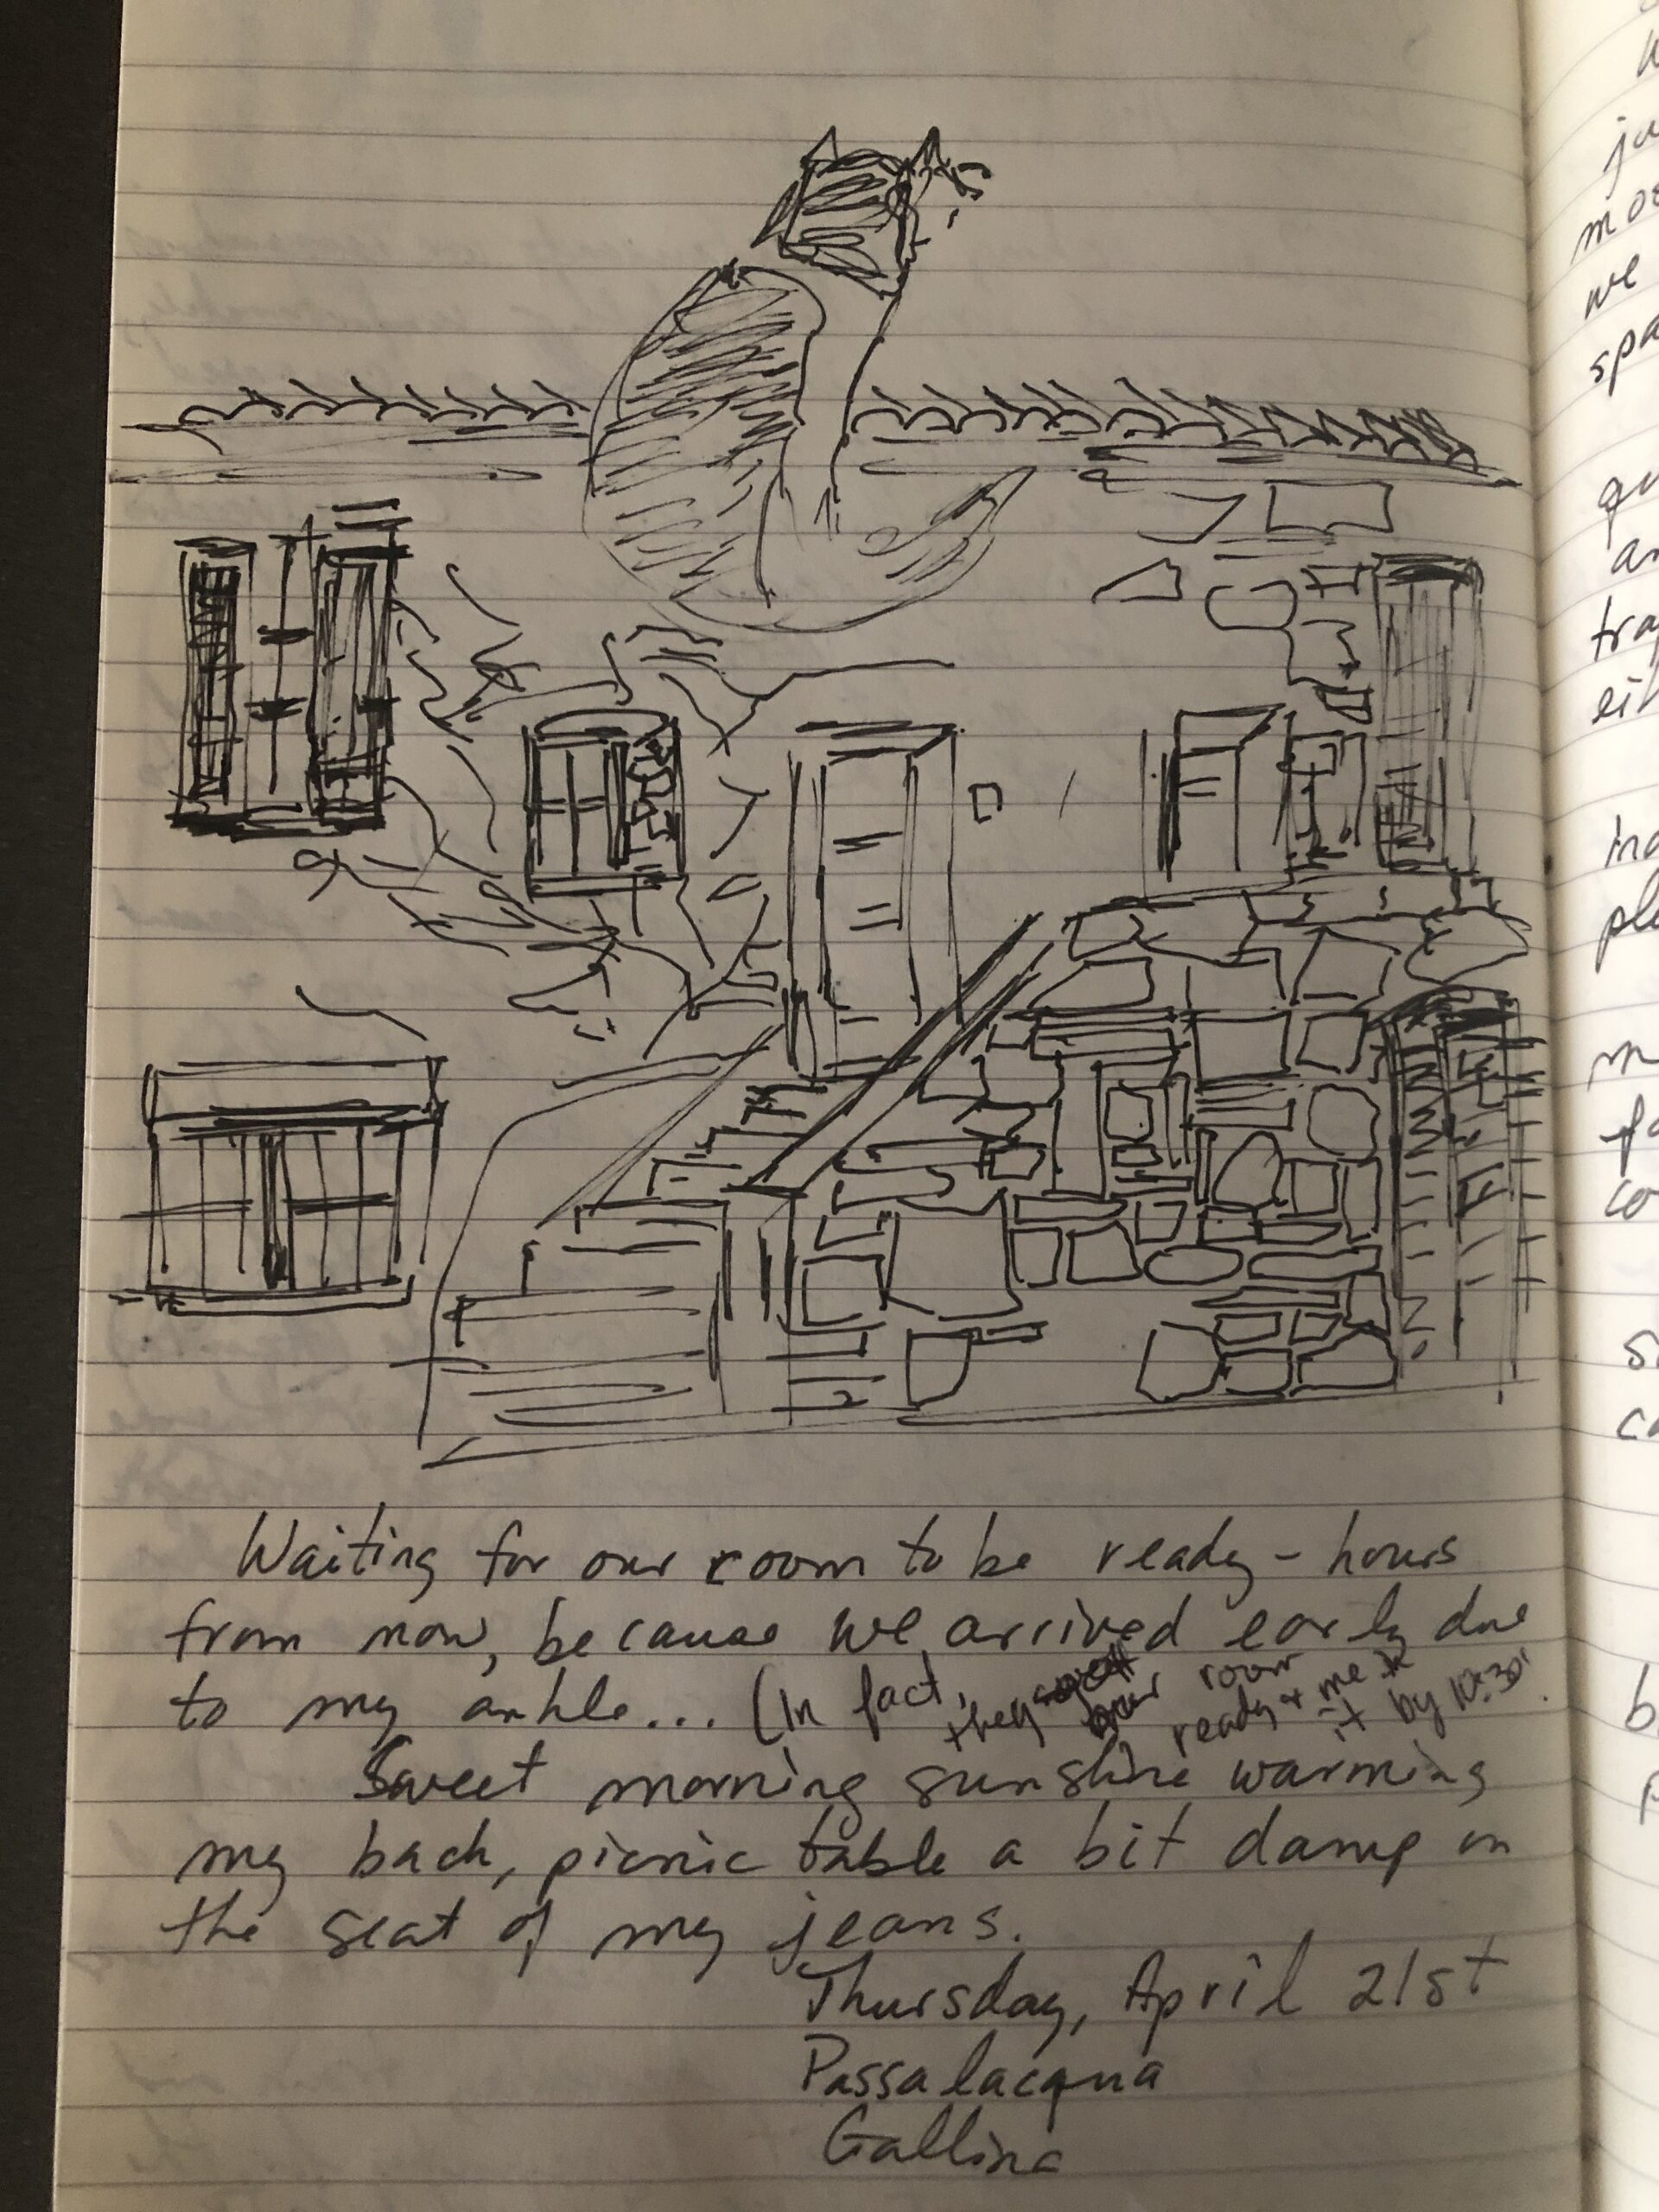 Waiting for our room to be ready - hours
from now, because we arrived early due
to my ankle... (In fact, they our room ready + me in it by 10:30!
Sweet morning sunshine warming
my back, picnic table a bit damp on
the seat of my jeans.
Thursday, April 21st
Passalacqua
Gallina
ju
we
spa
qu
an
tra
ind